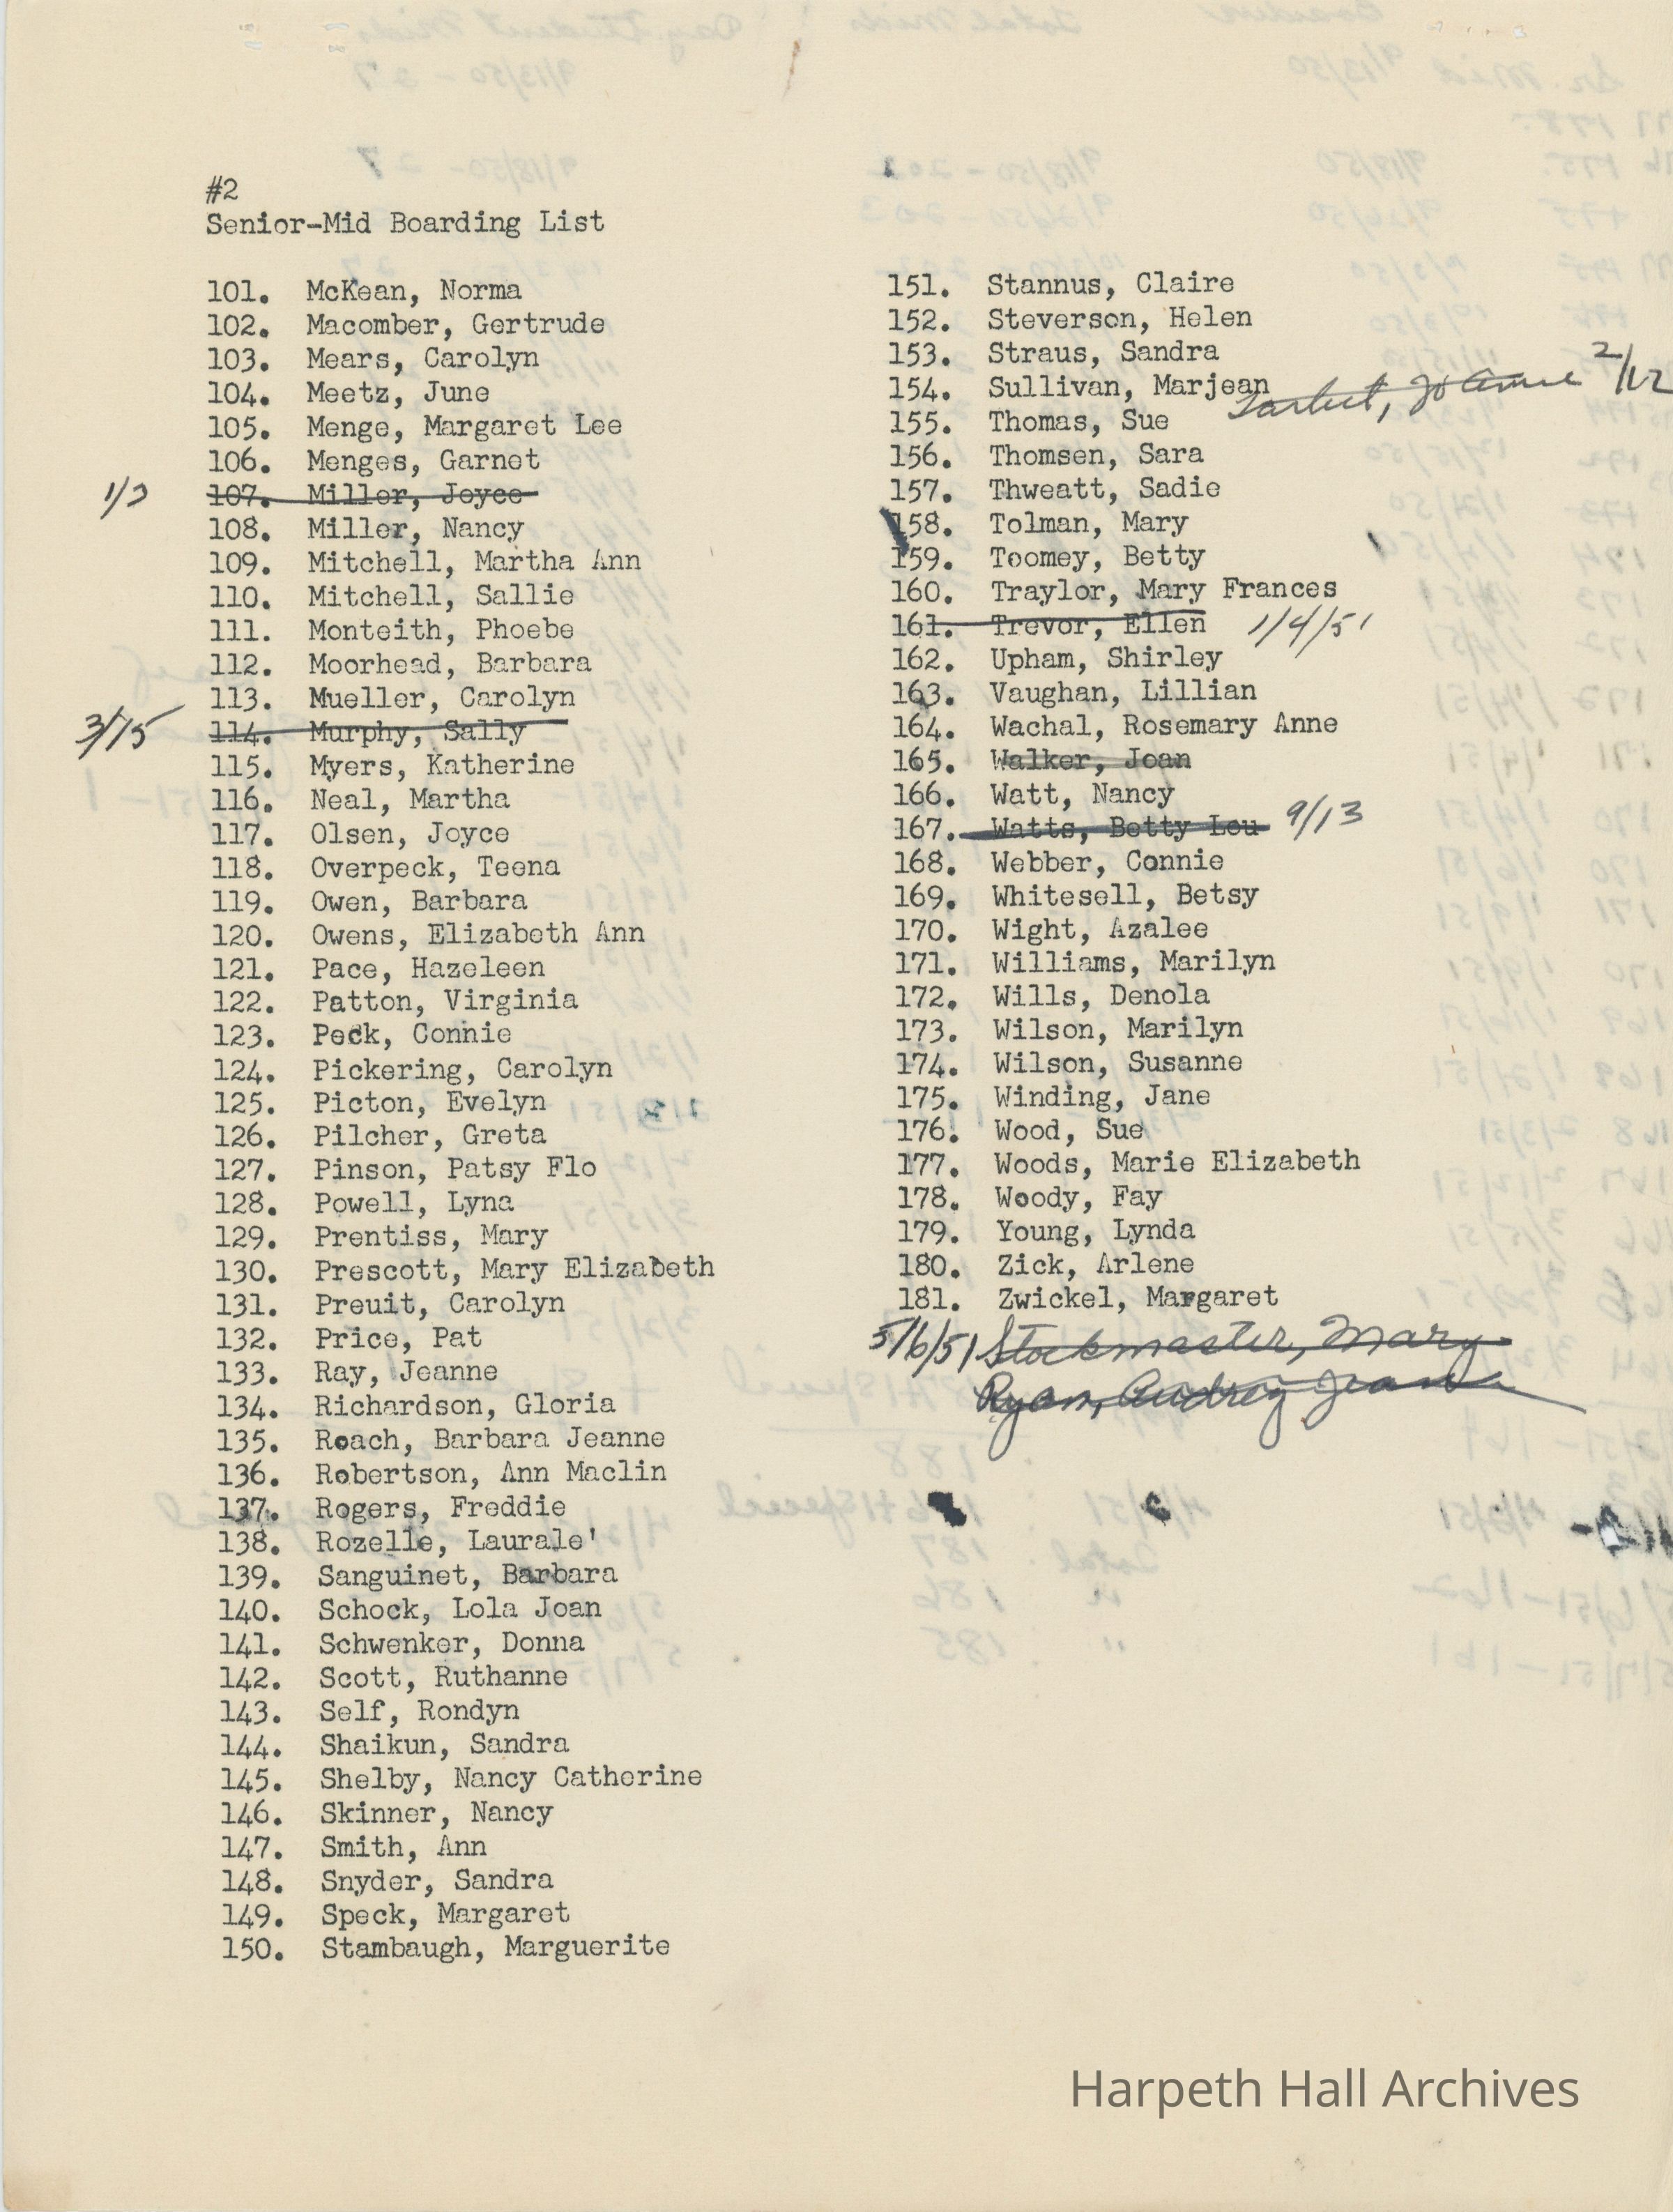 #2
Senior-Mid Boarding List
101. McKean, Norma
102. Macomber, Gertrude
103. Mears, Carolyn
104. Meetz, June
105. Menge, Margaret Lee
106. Menges, Garnet
1/3 107. Miller, Joyce
108. Miller, Nancy
109. Mitchell, Martha Ann
110. Mitchell, Sallie
111. Monteith, Phoebe
112. Moorhead, Barbara
113. Mueller, Carolyn
3/15 114. Murphy, Sally
115. Myers, Katherine
116. Neal, Martha
117. Olsen, Joyce
118. Overpeck, Teena
119. Owen, Barbara
120. Owens, Elizabeth Ann
121. Pace, Hazeleen
122. Patton, Virginia
123. Peck, Connie
124. Pickering, Carolyn
125. Picton, Evelyn
126. Pilcher, Greta
127. Pinson, Patsy Flo
128. Powell, Lyna
129. Prentiss, Mary
130. Prescott, Mary Elizabeth
131. Preuit, Carolyn
132. Price, Pat
133. Ray, Jeanne
134. Richardson, Gloria
135. Roach, Barbara Jeanne
136. Robertson, Ann Maclin
137. Rogers, Freddie
138. Rozelle, Laurale'
139. Sanguinet, Barbara
140. Schock, Lola Joan
141. Schwenker, Donna
142. Scott, Ruthanne
143. Self, Rondyn
144. Shaikun, Sandra
145. Shelby, Nancy Catherine
146. Skinner, Nancy
147. Smith, Ann
148. Snyder, Sandra
149. Speck, Margaret
150. Stambaugh, Marguerite
151. Stannus, Claire
152. Steverson, Helen
153. Straus, Sandra
154. Sullivan, Marjean
Jo Anne 2/12
155. Thomas, Sue
156. Thomsen, Sara
157. Thweatt, Sadie
158. Tolman, Mary
159. Toomey, Betty
160. Traylor, Mary Frances
161. Trevor, Ellen 1/4/51
162. Upham, Shirley
163. Vaughan, Lillian
164. Wachal, Rosemary Anne
165. Walker, Joan
166. Watt, Nancy
167. Watts, Betty Lou 9/13
168. Webber, Connie
169. Whitesell, Betsy
170. Wight, Azalee
171. Williams, Marilyn
172. Wills, Denola
173. Wilson, Marilyn
174. Wilson, Susanne
175. Winding, Jane
176. Wood, Sue
177. Woods, Marie Elizabeth
178. Woody, Fay
179. Young, Lynda
180. Zick, Arlene
181. Zwickel, Margaret
5/6/51 Stockmaster, Mary
Ryan, Audrey Jean
Harpeth Hall Archives